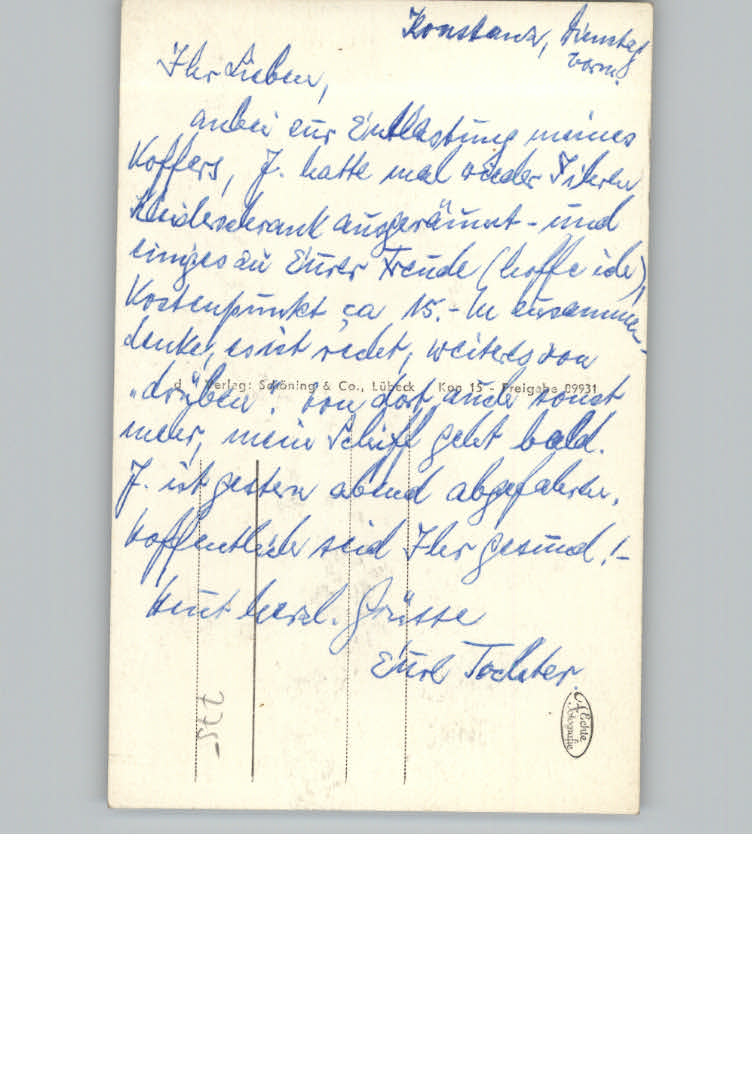 Konstanz, Dienstag
vorm.
Ihr Lieben,
anbei zur Entlastung meines
Koffers, J. hatte mal wieder Ihren
Kleiderschrank ausgeräumt - und
einiges zu Eurer Freude (hoffe ich),
Kostenpunkt ca 15.- M zusammen
denke, es ist recht, weiteres von
d Verlag: Schöning & Co., Lübeck Kon 15 - Freigabe 09931
„drüben". Von dort auch sonst
mehr, mein Schiff geht bald.
J. ist gestern abend abgefahren.
Hoffentlich seid Ihr gesund! -
Heut herzl. Grüsse
Eure Tochter.
Echte
Fotografie